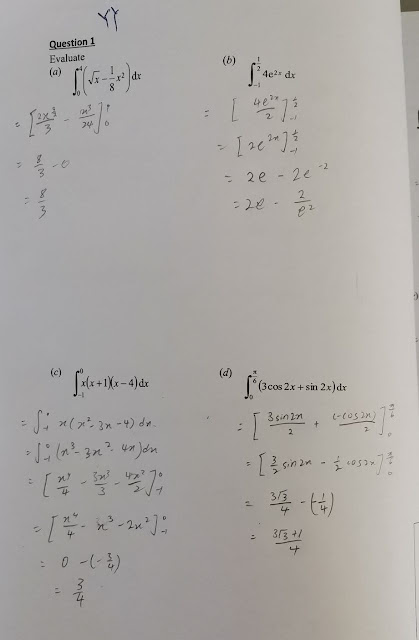 YY
Question 1
Evaluate
(a) ∫₀⁴ (√x − 1/8 x²) dx
= [2x^(3/2)/3 − x³/24]₀⁴
= 8/3 − 0
= 8/3
(b) ∫₋₁^(1/2) 4e^(2x) dx
= [4e^(2x)/2]₋₁^(1/2)
= [2e^(2x)]₋₁^(1/2)
= 2e − 2e⁻²
= 2e − 2/e²
(c) ∫₋₁⁰ x(x+1)(x−4) dx
= ∫₋₁⁰ x(x² − 3x − 4) dx.
= ∫₋₁⁰ (x³ − 3x² − 4x) dx
= [x⁴/4 − 3x³/3 − 4x²/2]₋₁⁰
= [x⁴/4 − x³ − 2x²]₋₁⁰
= 0 − (−3/4)
= 3/4
(d) ∫₀^(π/6) (3cos 2x + sin 2x) dx
= [3sin2x/2 + (−cos2x)/2]₀^(π/6)
= [3/2 sin2x − 1/2 cos2x]₀^(π/6)
= 3√3/4 − (−1/4)
= (3√3+1)/4